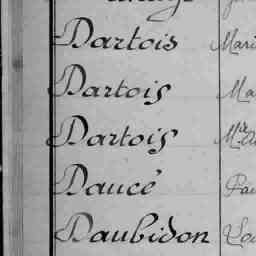 Dartois Mari
Dartois Ma
Dartois
Daucé Pau
Daubidon Lou